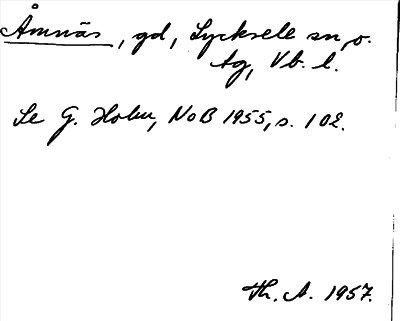 Åmnäs, gd, Lycksele sn o.
tg, Vb. l.
Se G. Holm, NoB 1955, s. 102.
Th. A. 1957.